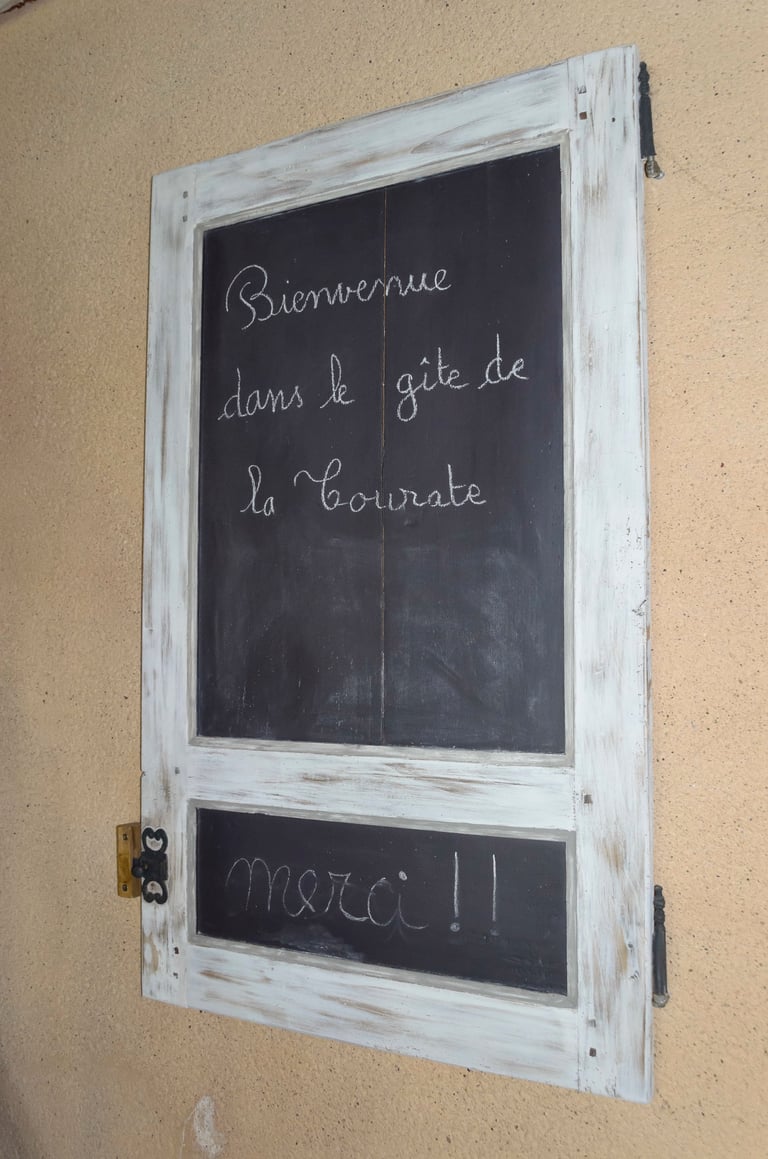 Bienvenue
dans le gîte de
la Tourate
merci !!